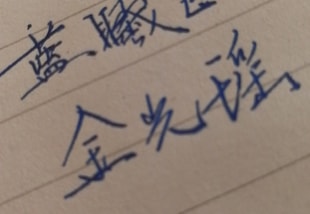 蓝曦
金光瑶